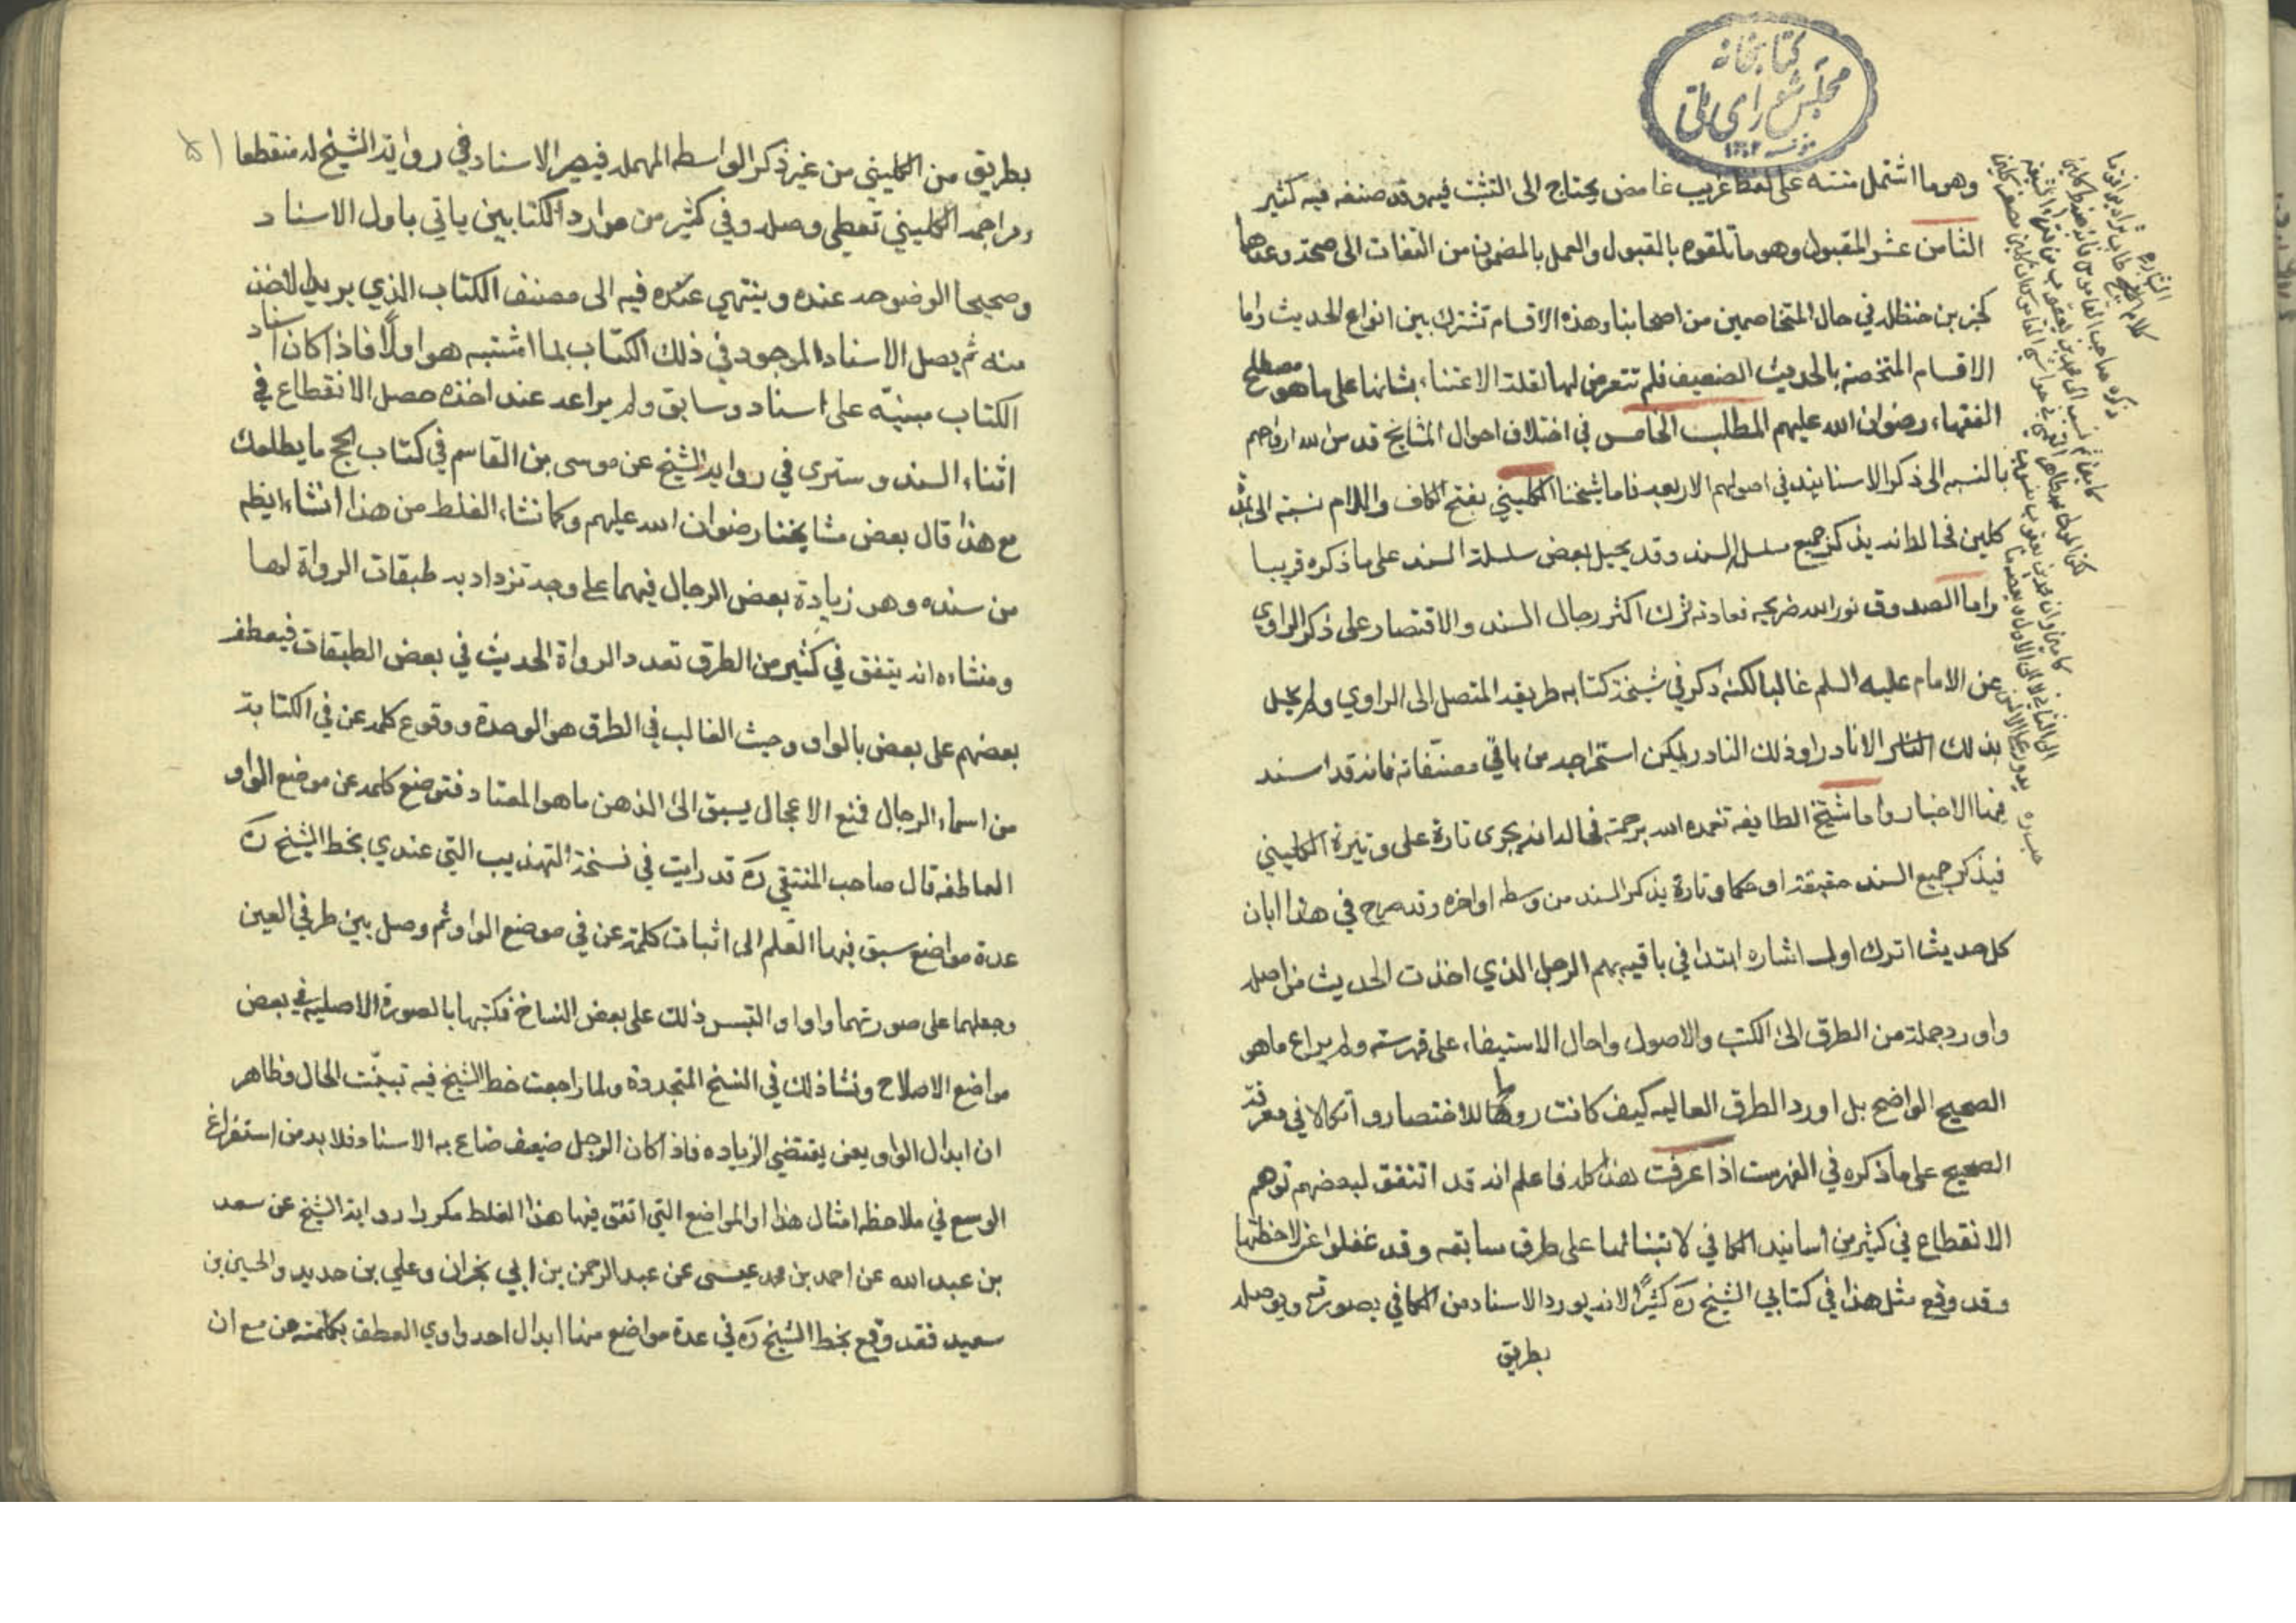 كتابخانه
مجلس شورای ملی
وهو ما اشتمل متنه على لفظ غريب غامض يحتاج الى التثبت فيه وقد صنفه فيه كثير
الثامن عشر المقبول وهو ما تلقوه بالمقبول والعمل بالمضمون من التفات الى صحته وعدمها
كخبر بن حنظله في حال المتخاصمين من اصحابنا وهذه الاقسام تشترك بين انواع الحديث واما
الاقسام المختصه بالحديث الضعيف فلم نتعرض لها لقلة الاعتناء بشانها على ما هو مصطلح
الفقهاء رضوان الله عليهم المطلب الخامس في اختلاف احوال المشايخ قدس الله ارواحهم
بالنسبه الى ذكر الاسنايند في اصولهم الاربعه فاما شيخنا الكليني بفتح الكاف واللام نسبته الى
كلين فحاله انه يذكر جميع سلسلة السند وقد يحيل بعض سلسلة السند على ما ذكره قريبا
واما الصدوق نور الله ضريحه فعادته ترك اكثر رجال السند والاقتصار على ذكر الراوي
عن الامام عليه السلم غالبا لكنه ذكر في شيخة كتابه طريقه المتصل الى الراوي ولم يخل
بذلك الا نادرا وذلك النادر يمكن استخراجه من باقي مصنفاته فانه قد اسند
فيها الاخبار واما شيخ الطايفه تغمده الله برحمته فحاله انه يجرى تارة على وتيرة الكليني
فيذكر جميع السند حقيقة او حكما وتارة يذكر السند من وسطه او اخره وقد صرح في هذا ابان
كل حديث اترك اول اشاره ابتدا في باقيه بهم الرجل الذي اخذت الحديث من اصله
واورد جملة من الطرق الى الكتب والاصول واحال الاستيفاء على فهرسته ولم يراع ما هو
الصحيح الواضح بل اورد الطرق العاليه كيف كانت روما للاختصار واتكالا في معرفة
الصحيح على ما ذكره في الفهرست اذا عرفت هذا كله فاعلم انه قد اتفق لبعضهم توهم
الانقطاع في كثير من اسانيد الكافي لابتنائها على طرق سابقه وقد غفلوا عن ملاحظتها
وقد وقع مثل هذا في كتابي الشيخ ره كثيرا لانه يورد الاسناد من الكافي بصورته ويوصله
بطريق
بطريق من الكليني من غير ذكر الواسطه المهمله فيصير الاسناد في رواية الشيخ له منقطعا
ومراجعة الكليني تعطي وصله وفي كثير من موارد الكتابين ياتي باول الاسناد
وصحيحا لوضوحه عنده وينتهي عنده فيه الى مصنف الكتاب الذي يريد الاخذ
منه ثم يصل الاسناد الموجود في ذلك الكتاب بما اشتبه هو اولا فاذا كان اسناد
الكتاب مبنيه على اسناد وسابق ولم يراعه عند اخذه حصل الانقطاع في
اثناء السند وسترى في رواية الشيخ عن موسى بن القاسم في كتاب الحج ما يطلعك
مع هذا قال بعض مشايخنا رضوان الله عليهم وكما نشاء الغلط من هذا انشاء ايظم
من سنده وهو زيادة بعض الرجال فيهما على وجه تزداد به طبقات الرواة لهما
ومنشاءه انه يتفق في كثير من الطرق تعدد الرواة الحديث في بعض الطبقات فيعطف
بعضهم على بعض بالواو وحيث الغالب في الطرق هو الوحدة ووقوع كلمه عن في الكتابة
من اسماء الرجال فمع الاعجال يسبق الى الذهن ما هو المعتاد فتوضع كلمه عن موضع الواو
العاطفه قال صاحب المنتقى ره قد رايت في نسخة التهذيب التي عندي بخط الشيخ ره
عدة مواضع سبق فيها القلم الى اثبات كلمة عن في موضع الواو ثم وصل بين طرفي العين
وجعلهما على صورتهما واوا والتبس ذلك على بعض النساخ فكتبها بالصورة الاصليه في بعض
مواضع الاصلاح ونشا ذلك في النسخ المتجددة ولما راجعت خط الشيخ فيه تبينت الحال وظاهر
ان ابدال الواو بعن يقتضي الزياده فاذا كان الرجل ضيعف ضاع به الاسناد فلا بد من استفراغ
الوسع في ملاحظه امثال هذا والمواضع التي اتفق فيها هذا الغلط مكررا رواية الشيخ عن سعد
بن عبد الله عن احمد بن محمد عيسى عن عبد الرحمن بن ابي نجران وعلي بن حديد والحسين بن
سعيد فقد وقع بخط الشيخ ره في عدة مواضع منها ابدال احد واوي العطف بكلمة عن مع ان